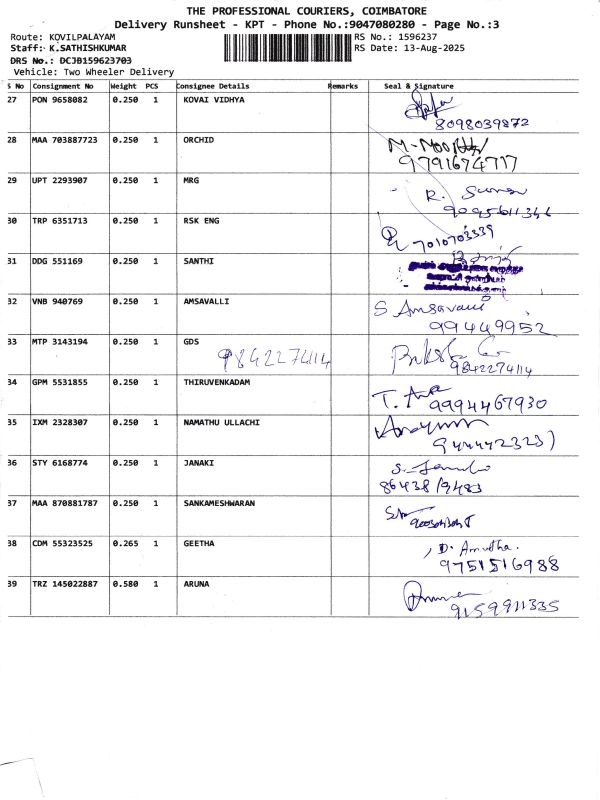 THE PROFESSIONAL COURIERS, COIMBATORE
Delivery Runsheet - KPT - Phone No.:9047080280 - Page No.:3
Route: KOVILPALAYAM
RS No.: 1596237
Staff: K.SATHISHKUMAR
RS Date: 13-Aug-2025
DRS No.: DCJB159623703
Vehicle: Two Wheeler Delivery
S No Consignment No Weight PCS Consignee Details Remarks Seal & Signature
27 PON 9658082 0.250 1 KOVAI VIDHYA
8098039872
28 MAA 703887723 0.250 1 ORCHID
9791674717
29 UPT 2293907 0.250 1 MRG
R.
30 TRP 6351713 0.250 1 RSK ENG
7010703339
31 DDG 551169 0.250 1 SANTHI
32 VNB 940769 0.250 1 AMSAVALLI
S Amsavalli
99449952
33 MTP 3143194 0.250 1 GDS
9842274114
9842274114
34 GPM 5531855 0.250 1 THIRUVENKADAM
T.
9994467930
35 IXM 2328307 0.250 1 NAMATHU ULLACHI
36 STY 6168774 0.250 1 JANAKI
86438/9483
37 MAA 870881787 0.250 1 SANKAMESHWARAN
38 CDM 55323525 0.265 1 GEETHA
D. Amutha.
9751516988
39 TRZ 145022887 0.580 1 ARUNA
9159911335